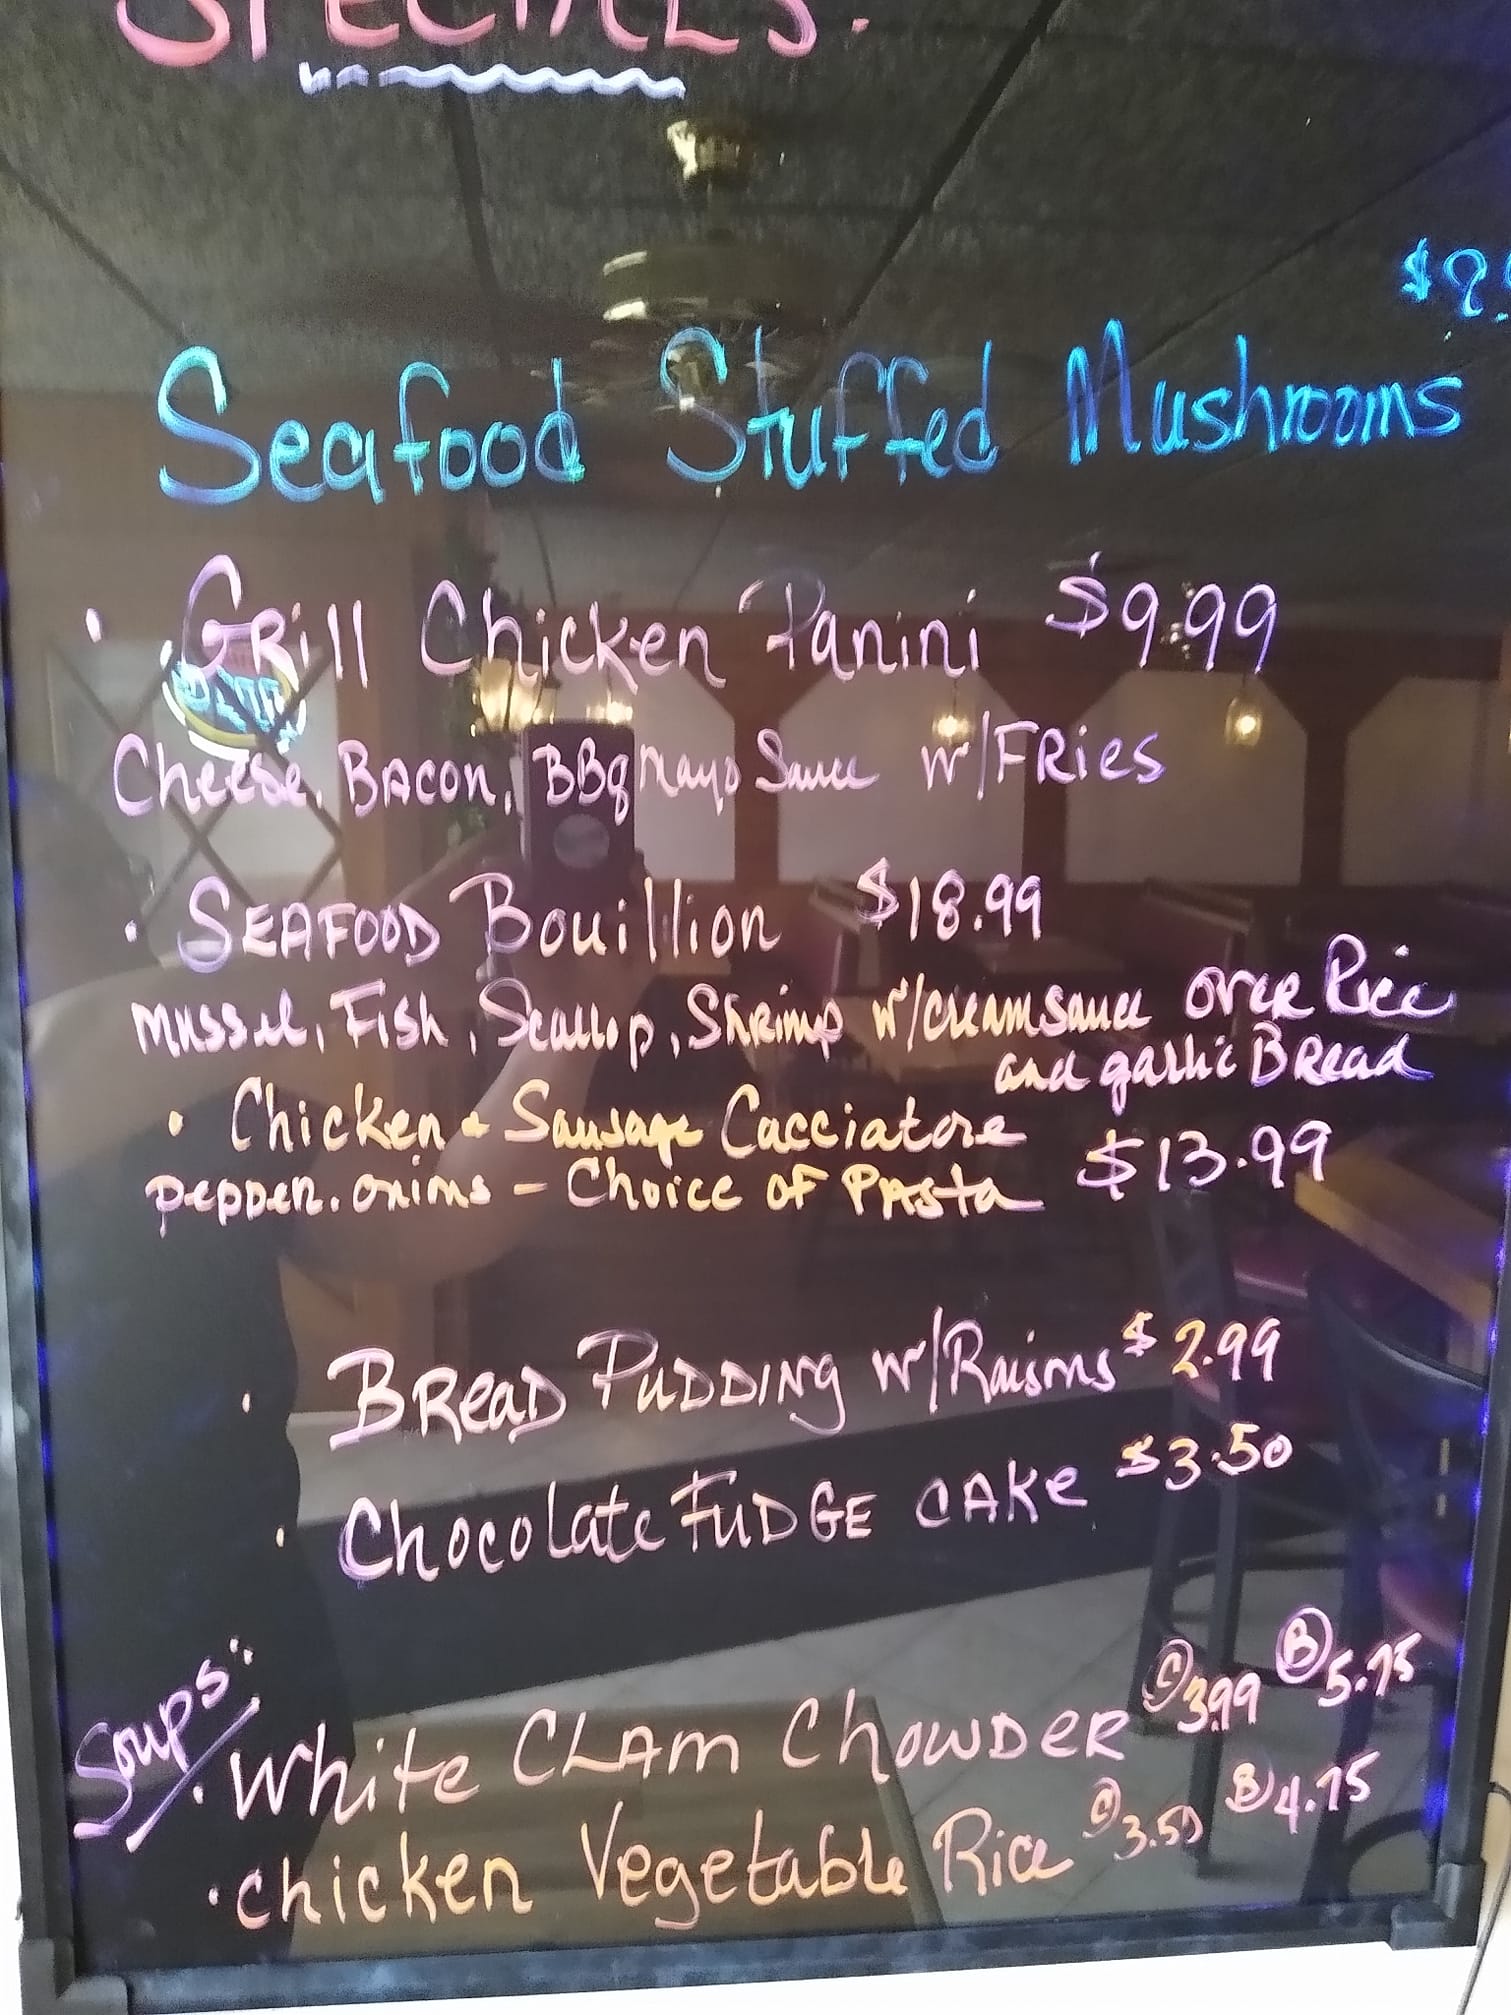 SPECIALS:
Seafood Stuffed Mushrooms
• GRill Chicken Panini $9.99
Cheese, BACON, BBq Mayo Sauce w/FRies
• SEAFOOD Bouillion $18.99
mussel, Fish, Scallop, Shrimp w/cream sauce over Rice
and garlic BRead
• Chicken & Sausage Cacciatore
peppen. onions - Choice OF PAsta $13.99
• BReaD PuDDING w/Raisins $2.99
• Chocolate FuDGE CAKe $3.50
Soups:
• White CLAm ChowDeR Ⓒ3.99 Ⓑ5.75
• chicken Vegetable Rice Ⓒ3.50 Ⓑ4.75